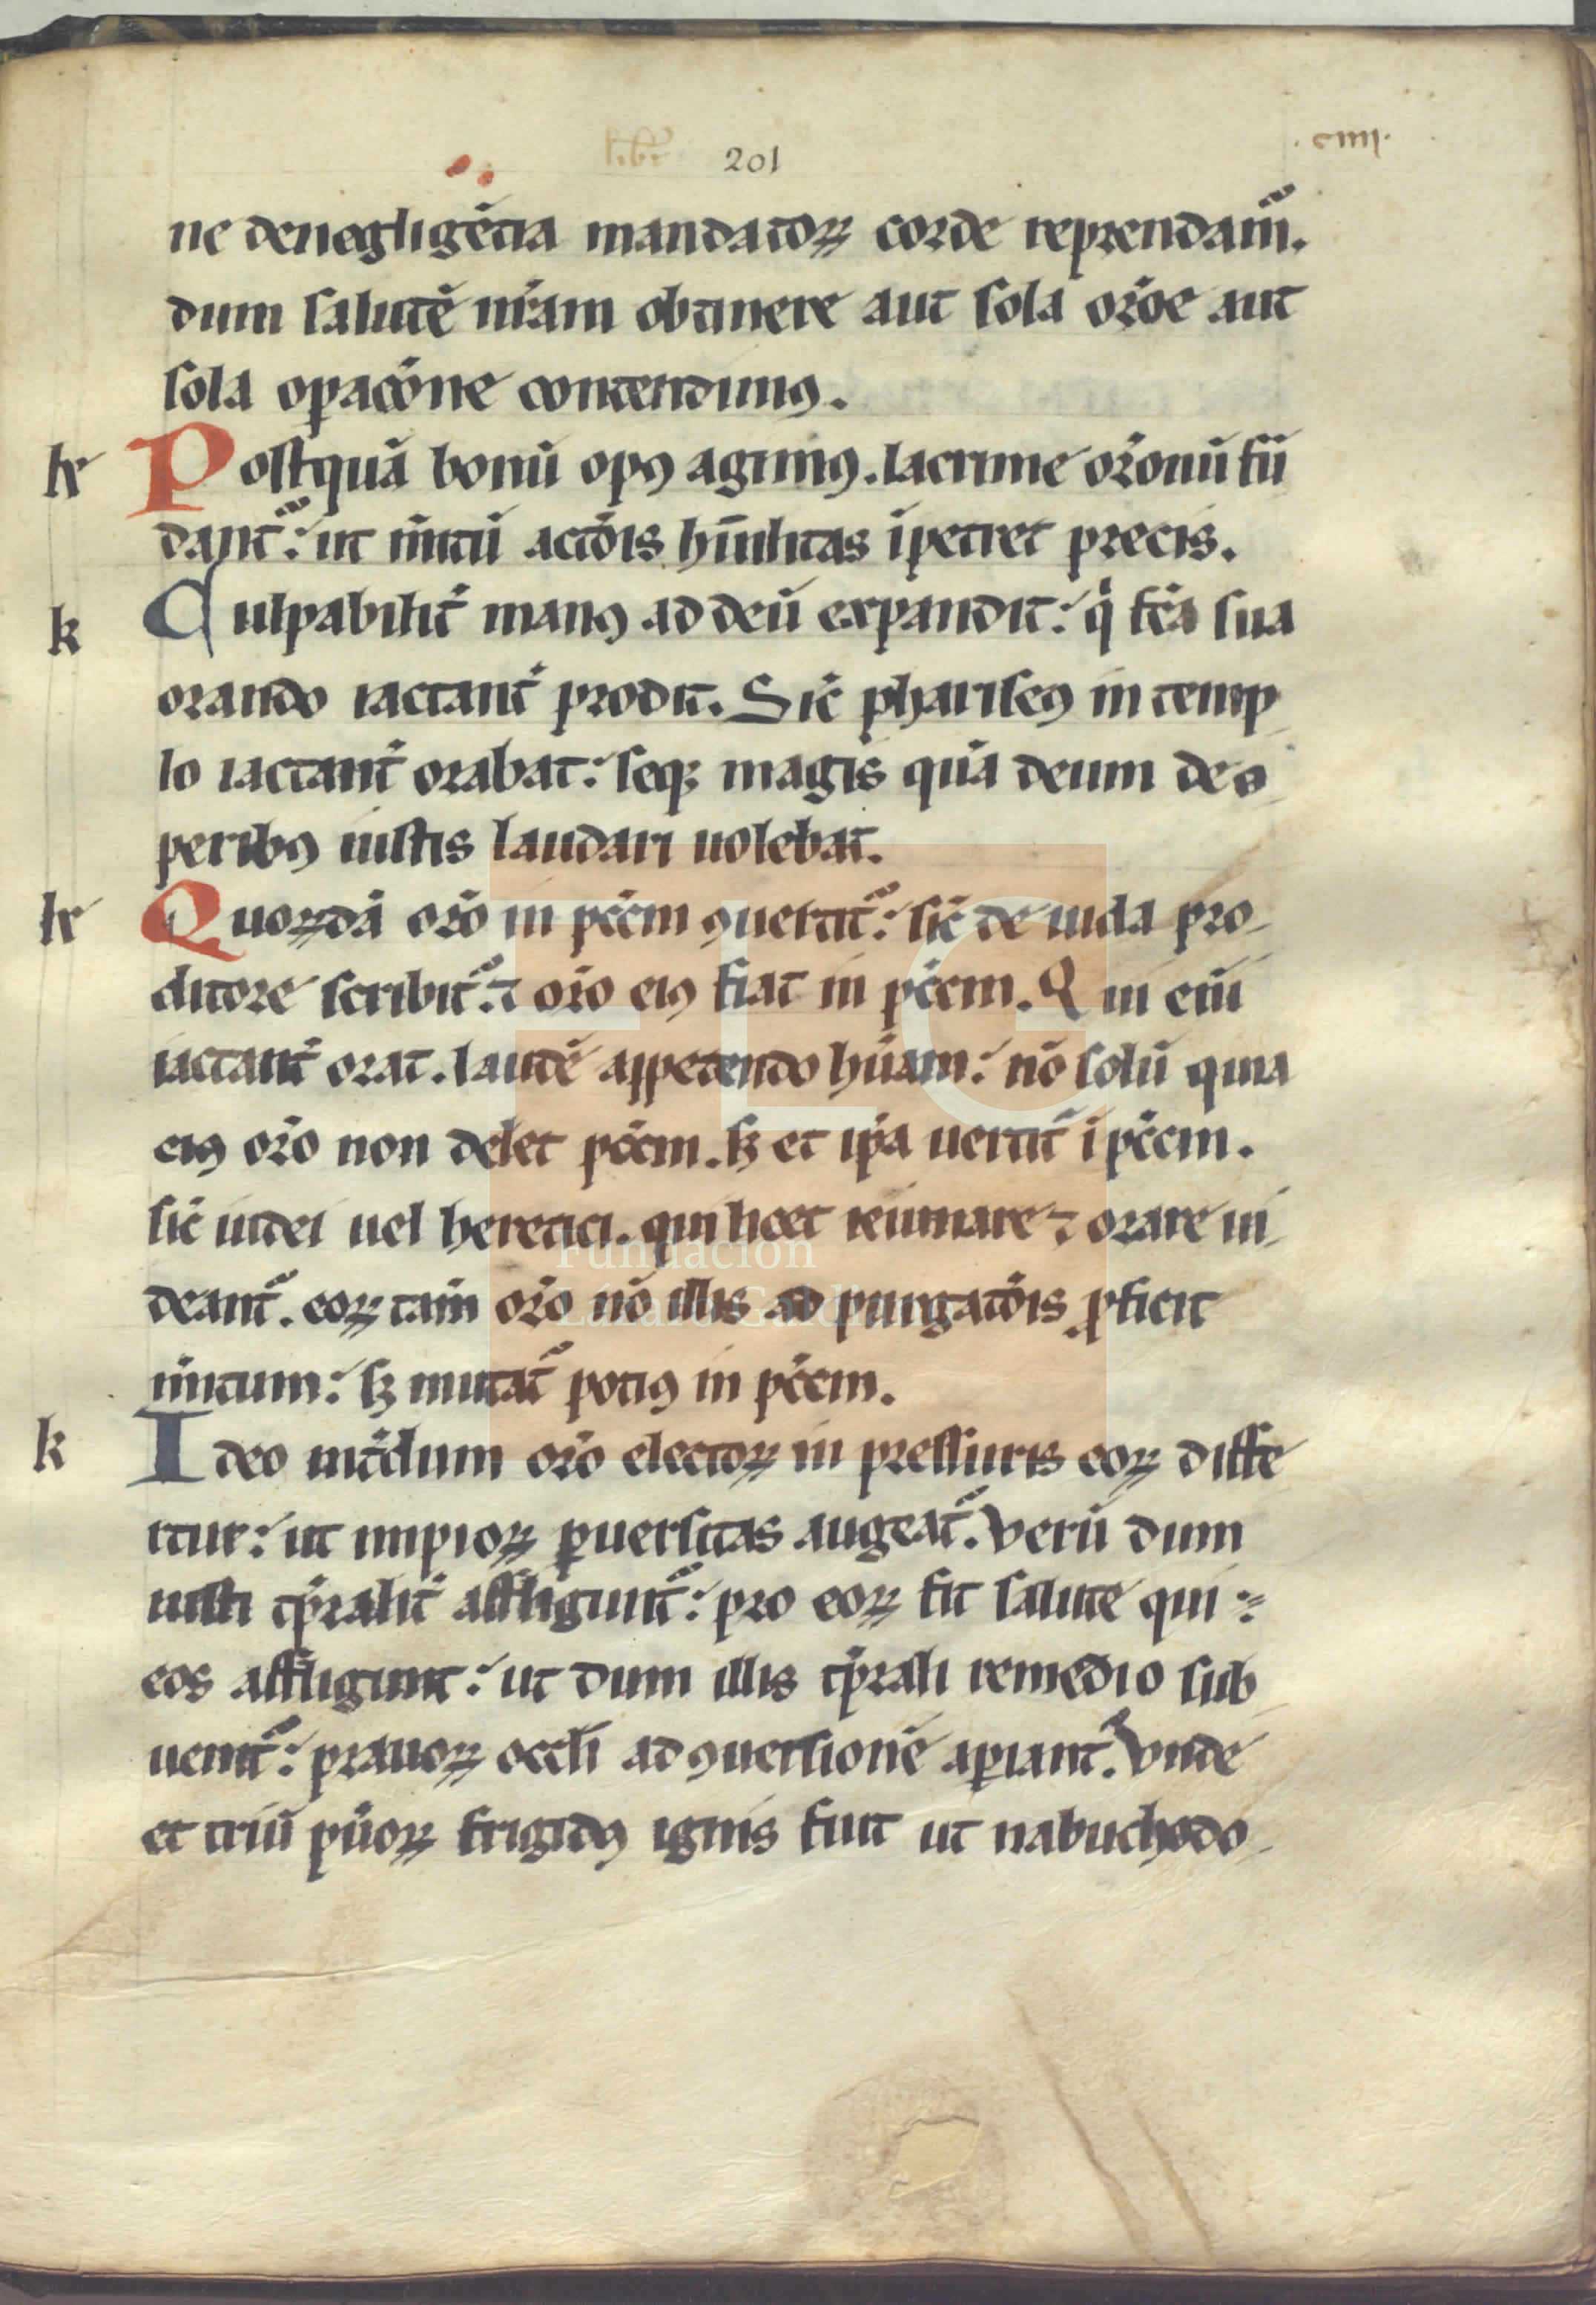 lib͛ 201 .ciiii.
ne de neglige̅tia mandatoꝝ corde reprendam᷑.
dum salute̅ nr̅am obtinere aut sola or̅oe aut
sola oꝑaco̅ne contendimꝰ.
k Postqua̅ bonu̅ opꝰ agimꝰ. lacrime or̅onu̅ fu̅
dant᷑: ut m̅itu̅ acto̅is hu̅ilitas i̅petret precis.
k Culpabilit̅ manꝰ ad deu̅ expandit: qͥ fc̅a sua
orando iactant̅ prodit. Sic̅ phariseꝰ in temp
lo iactant̅ orabat: seqꝫ magis qua̅ deum de o
peribꝰ iustis laudari uolebat.
k Quoꝝda̅ or̅o in pc̅cm ꝯuertit᷑: sic̅ de iuda pro-
ditore scribit᷑. ⁊ or̅o eiꝰ fiat in pc̅cm. Qui eni̅
iactant̅ orat. laude̅ appetendo hu̅am: no̅ solu̅ quia
eiꝰ or̅o non delet pc̅cm. sꝫ et ip̅a uertit᷑ i̅ pc̅cm.
sic̅ iudei uel heretici. qui licet ieiunare ⁊ orare ui
deant᷑. eoꝝ tam̅ or̅o no̅ illis ad purgato̅is ꝓficit
m̅itum: sꝫ mutat᷑ potiꝰ in pc̅cm.
k Ideo int̅dum or̅o electoꝝ in pressuris eoꝝ diffe
rtur: ut impioꝝ ꝑuersitas augeat᷑. Veru̅ dum
iusti tp̅ralit̅ affligunt᷑: pro eoꝝ fit salute qui
eos affligunt: ut dum illis tp̅rali remedio sub
uenit᷑: prauoꝝ occli̅ ad ꝯuersione̅ aꝑiant᷑. Vnde
et triu̅ pu̅oꝝ frigidꝰ ignis fuit ut nabuchodo-
FLG
Fundación
Lázaro Galdiano